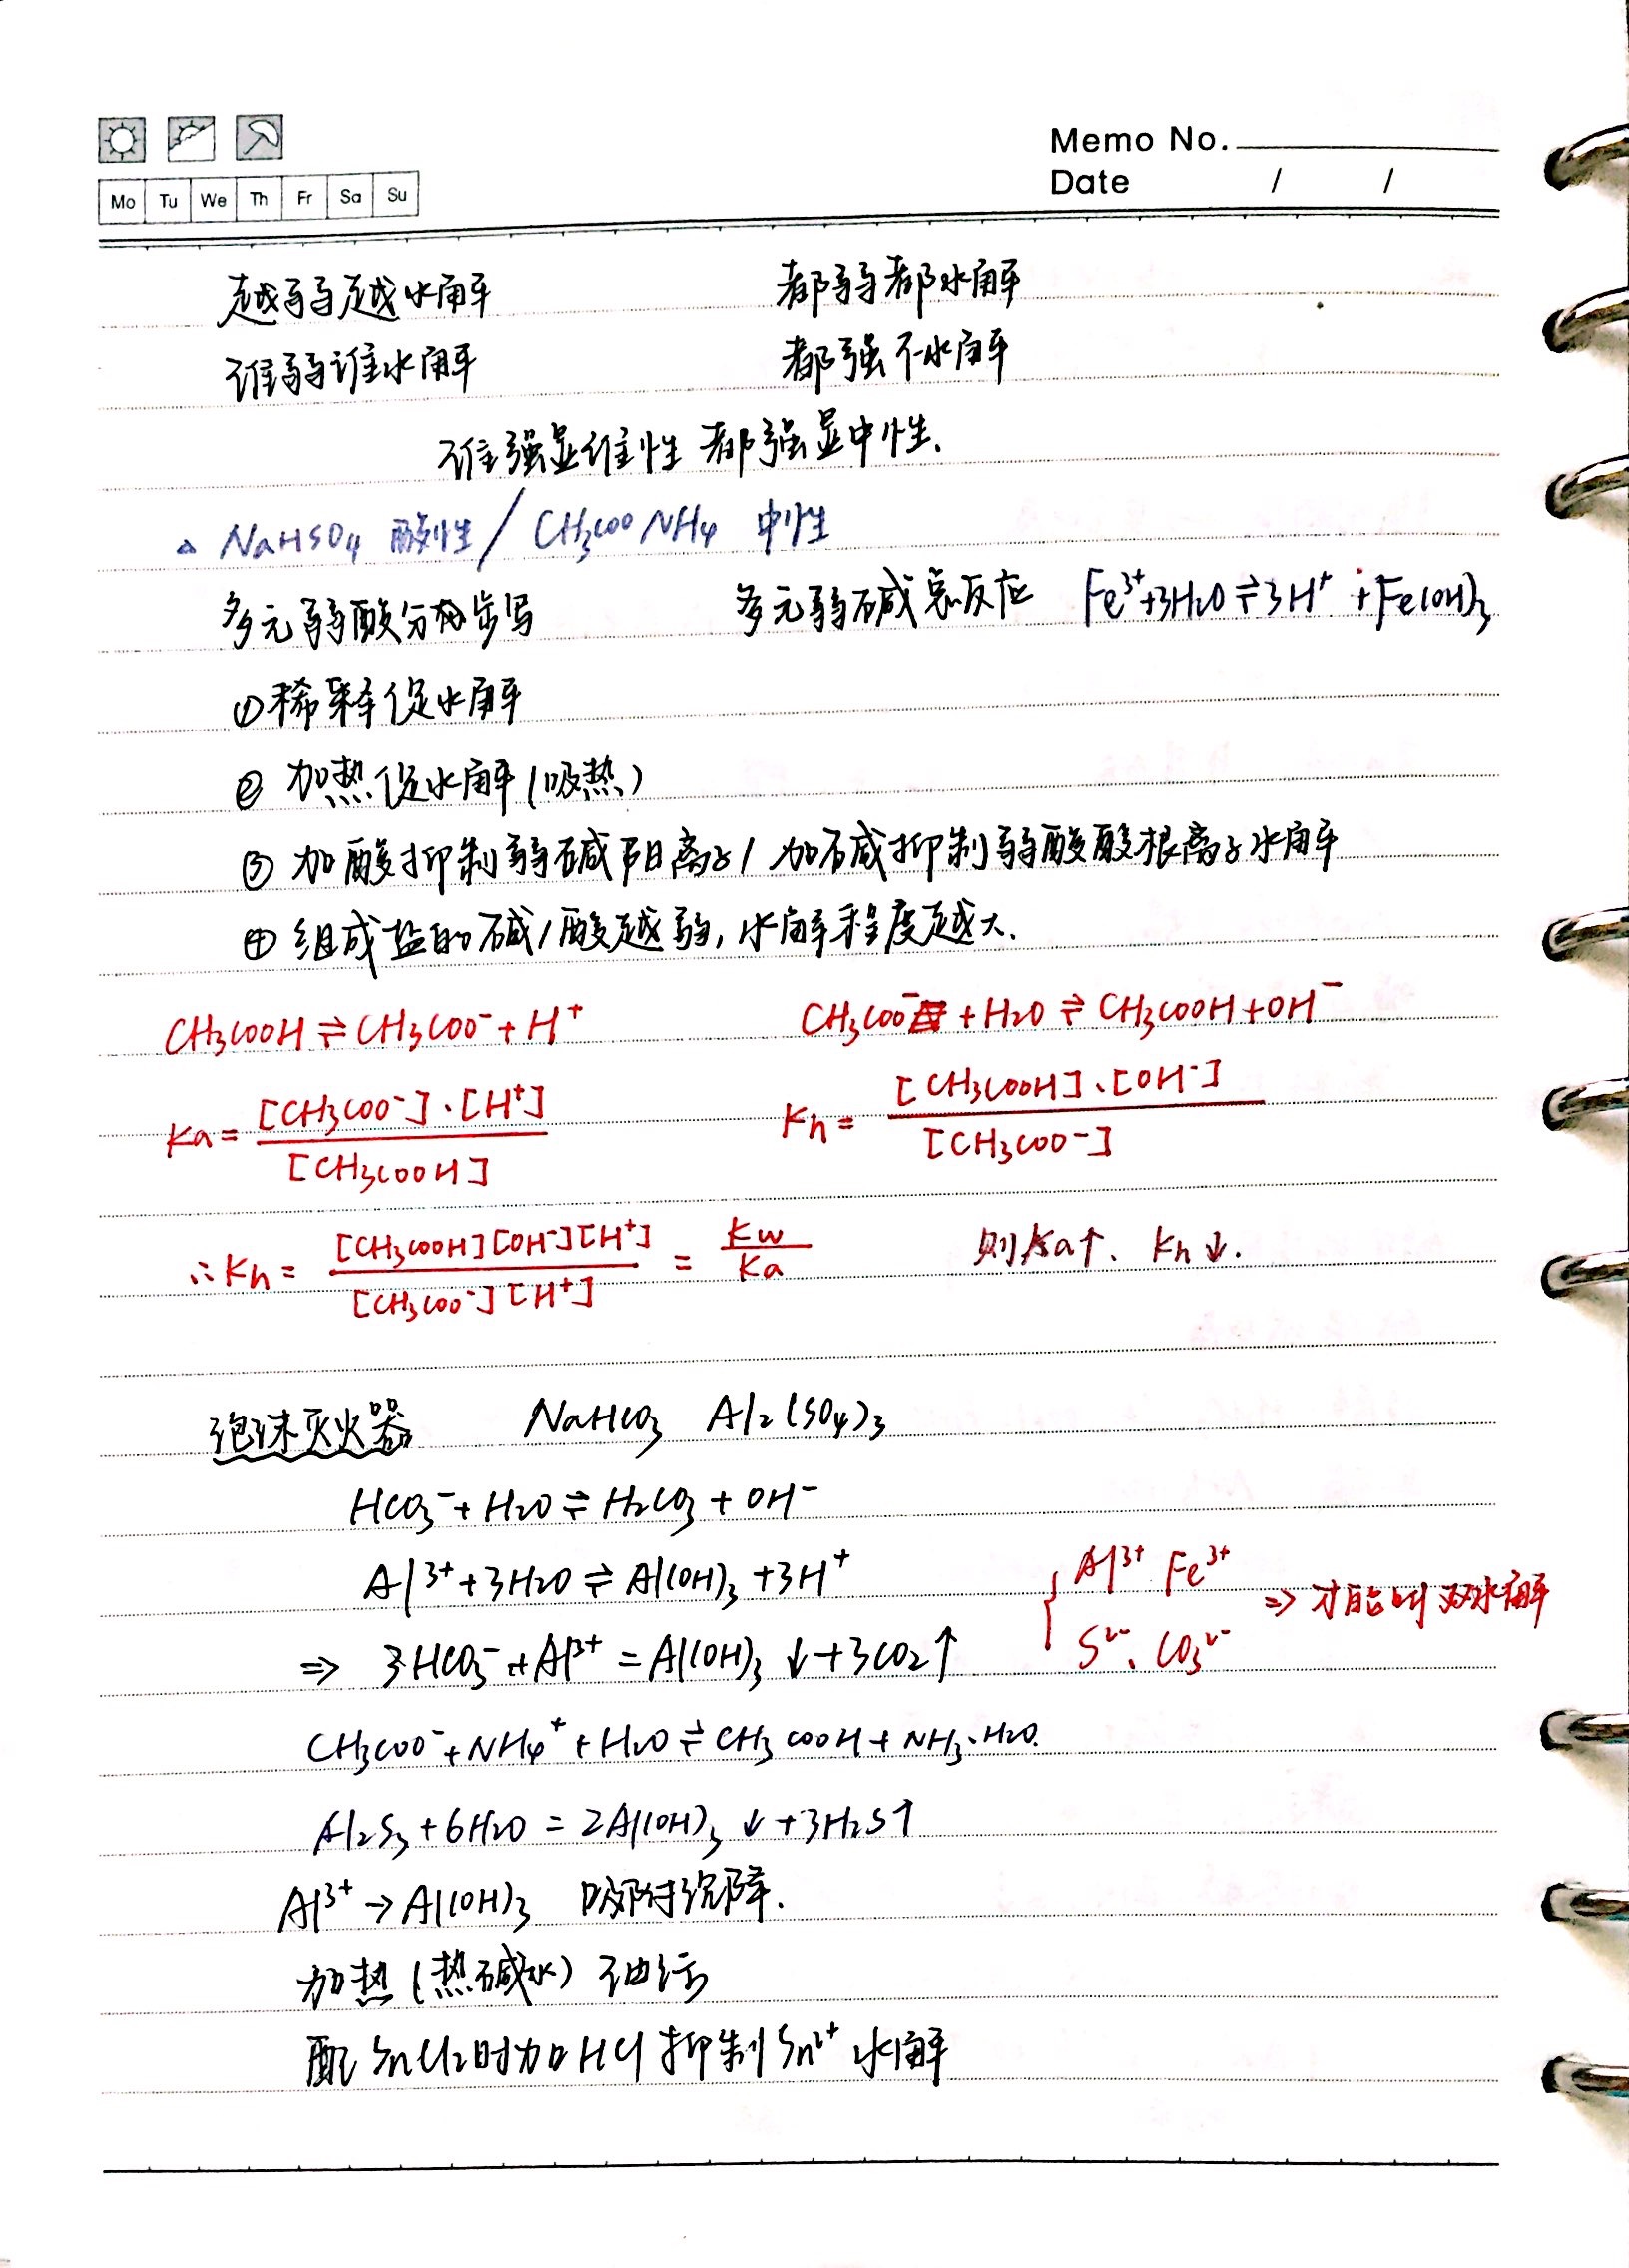 Memo No.
Mo Tu We Th Fr Sa Su
Date / /
越弱越水解 都弱都水解
谁弱谁水解 都强不水解
谁强显谁性 都强显中性.
△ NaHSO₄ 酸性 / CH₃COONH₄ 中性
多元弱酸分步写 多元弱碱总反应 Fe³⁺+3H₂O⇌3H⁺+Fe(OH)₃
①稀释促水解
② 加热促水解(吸热)
③ 加酸抑制弱碱阳离子/加碱抑制弱酸酸根离子水解
④ 组成盐的碱/酸越弱,水解程度越大.
CH₃COOH⇌CH₃COO⁻+H⁺ CH₃COO⁻+H₂O⇌CH₃COOH+OH⁻
Ka=[CH₃COO⁻]·[H⁺]/[CH₃COOH] Kh=[CH₃COOH]·[OH⁻]/[CH₃COO⁻]
∴Kh=[CH₃COOH][OH⁻][H⁺]/[CH₃COO⁻][H⁺]=Kw/Ka 则Ka↑、Kh↓.
泡沫灭火器 NaHCO₃ Al₂(SO₄)₃
HCO₃⁻+H₂O⇌H₂CO₃+OH⁻
Al³⁺+3H₂O⇌Al(OH)₃+3H⁺
⇒ 3HCO₃⁻+Al³⁺=Al(OH)₃↓+3CO₂↑
{Al³⁺ Fe³⁺
S²⁻、CO₃²⁻ ⇒才能叫双水解
CH₃COO⁻+NH₄⁺+H₂O⇌CH₃COOH+NH₃·H₂O.
Al₂S₃+6H₂O=2Al(OH)₃↓+3H₂S↑
Al³⁺→Al(OH)₃ 吸附沉降.
加热(热碱水)油污
配SnCl₂时加HCl抑制Sn²⁺水解